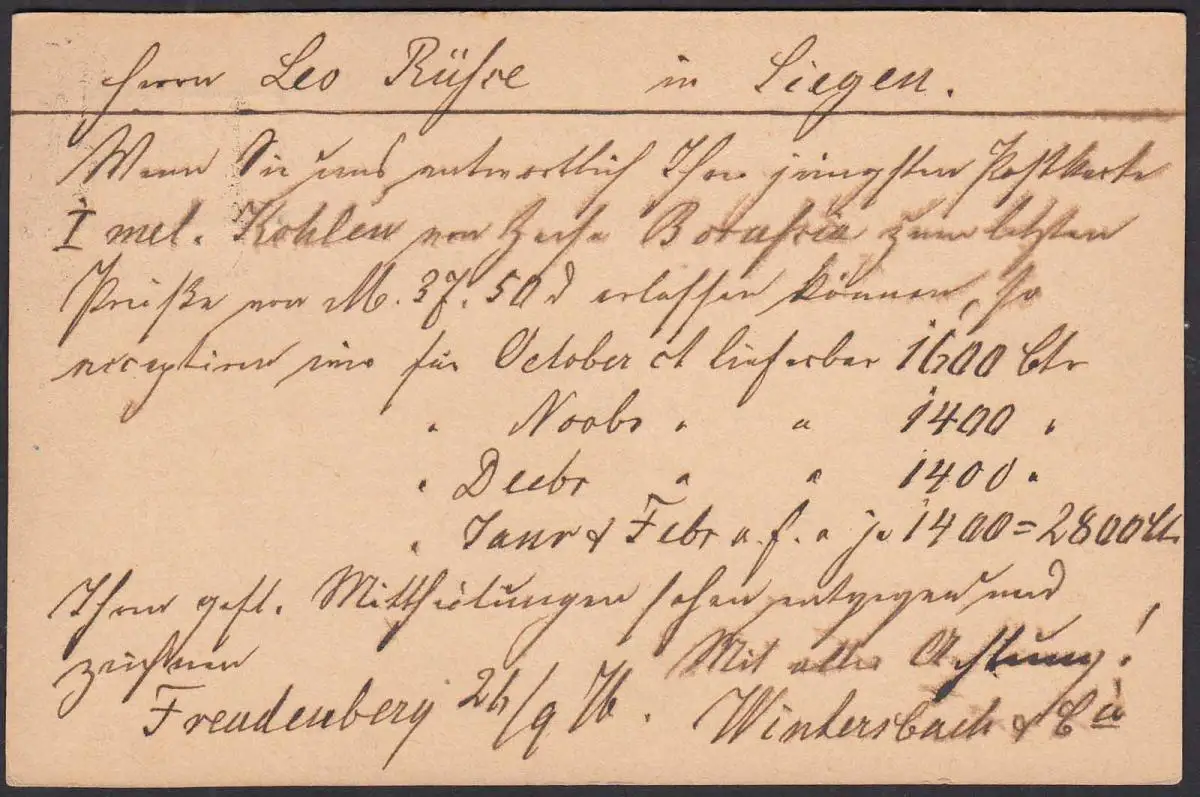 Herrn Leo Rühse in Siegen.
Wenn Sie uns antwortlich Ihrer jüngsten Postkarte
I mel. Kohlen von Zeche Borussia zum letzten
Preiße von M. 37.50 d erlassen können, so
acceptiren wir für October ct lieferbar 1600 Ctr
" Novbr " " 1400 "
" Decbr " " 1400 "
" Janr & Febr a.f. " je 1400 = 2800 Ctr
Ihren gefl. Mittheilungen sehen entgegen und
zeichnen Mit aller Achtung!
Freudenberg 26/9 76. Wintersbach & Cie